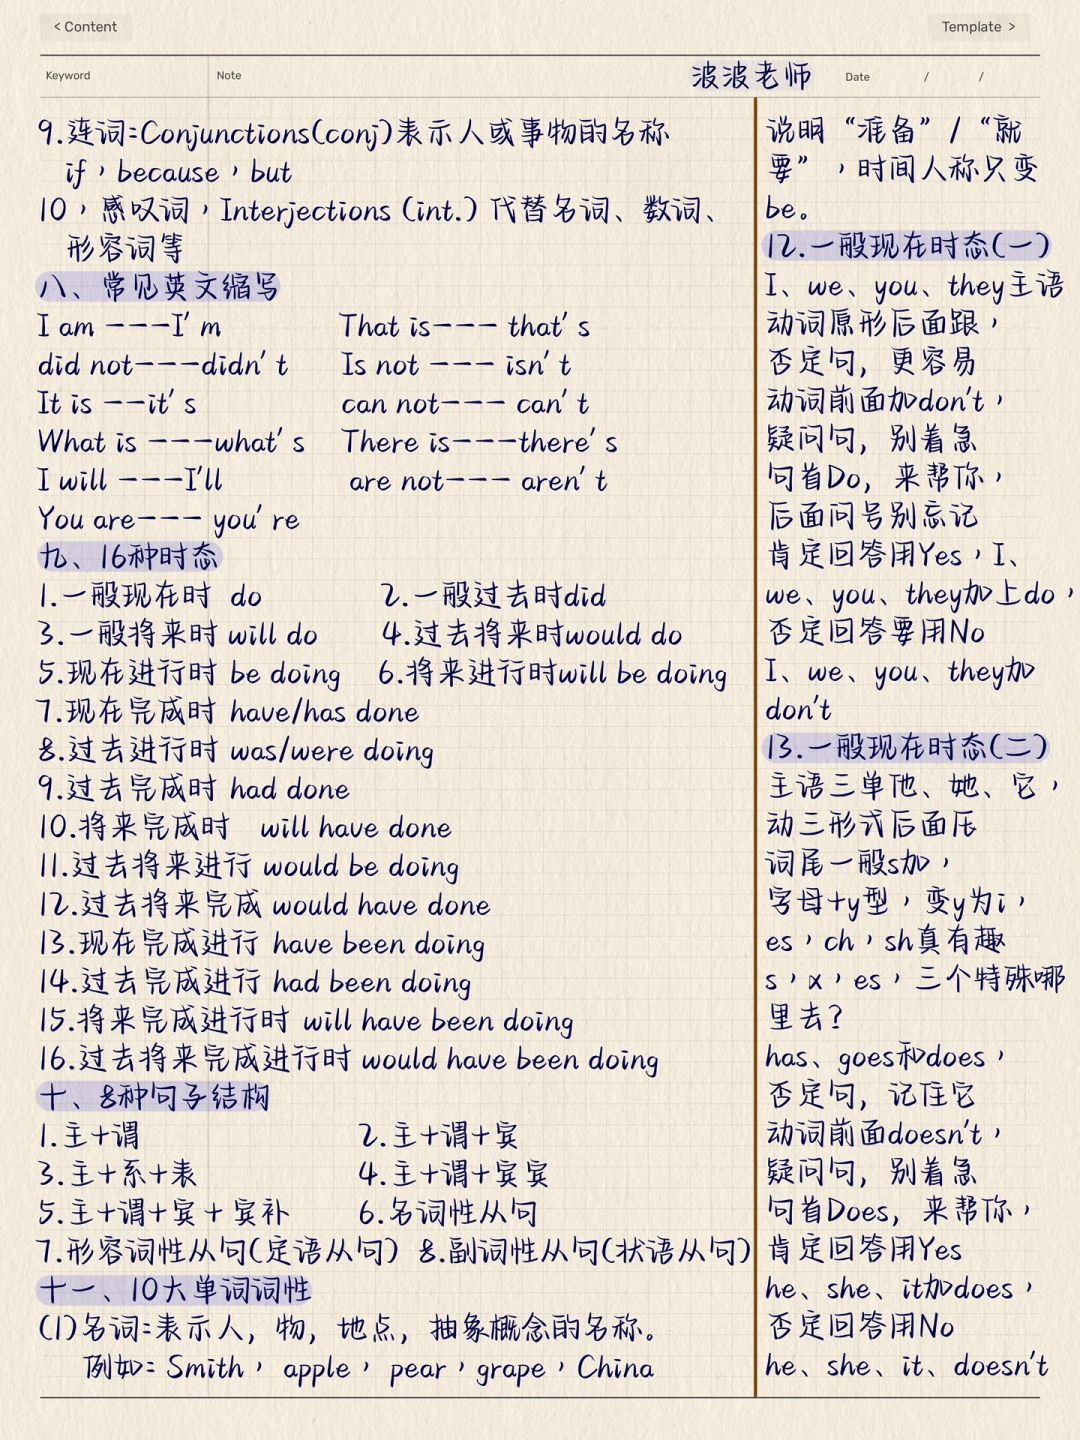 < Content
Template >
Keyword
Note
波波老师
Date / /
9.连词:Conjunctions(conj)表示人或事物的名称
if，because，but
10，感叹词，Interjections (int.) 代替名词、数词、
形容词等
八、常见英文缩写
I am ---I' m That is--- that' s
did not---didn' t Is not --- isn' t
It is --it' s can not--- can' t
What is ---what' s There is---there' s
I will ---I'll are not--- aren' t
You are--- you' re
九、16种时态
1.一般现在时 do 2.一般过去时did
3.一般将来时 will do 4.过去将来时would do
5.现在进行时 be doing 6.将来进行时will be doing
7.现在完成时 have/has done
8.过去进行时 was/were doing
9.过去完成时 had done
10.将来完成时 will have done
11.过去将来进行 would be doing
12.过去将来完成 would have done
13.现在完成进行 have been doing
14.过去完成进行 had been doing
15.将来完成进行时 will have been doing
16.过去将来完成进行时 would have been doing
十、8种句子结构
1.主+谓 2.主+谓+宾
3.主+系+表 4.主+谓+宾宾
5.主+谓+宾 + 宾补 6.名词性从句
7.形容词性从句(定语从句) 8.副词性从句(状语从句)
十一、10大单词词性
(1)名词:表示人, 物, 地点, 抽象概念的名称。
例如: Smith， apple， pear，grape，China
说明“准备”/“就
要”，时间人称只变
be。
12.一般现在时态(一)
I、we、you、they主语
动词原形后面跟，
否定句, 更容易
动词前面加don't，
疑问句, 别着急
句首Do, 来帮你，
后面问号别忘记
肯定回答用Yes，I、
we、you、they加上do，
否定回答要用No
I、we、you、they加
don't
13.一般现在时态(二)
主语三单他、她、它，
动三形式后面压
词尾一般s加，
字母+y型，变y为i，
es，ch，sh真有趣
s，x，es，三个特殊哪
里去?
has、goes和does，
否定句, 记住它
动词前面doesn't，
疑问句, 别着急
句首Does, 来帮你，
肯定回答用Yes
he、she、it加does，
否定回答用No
he、she、it、doesn't